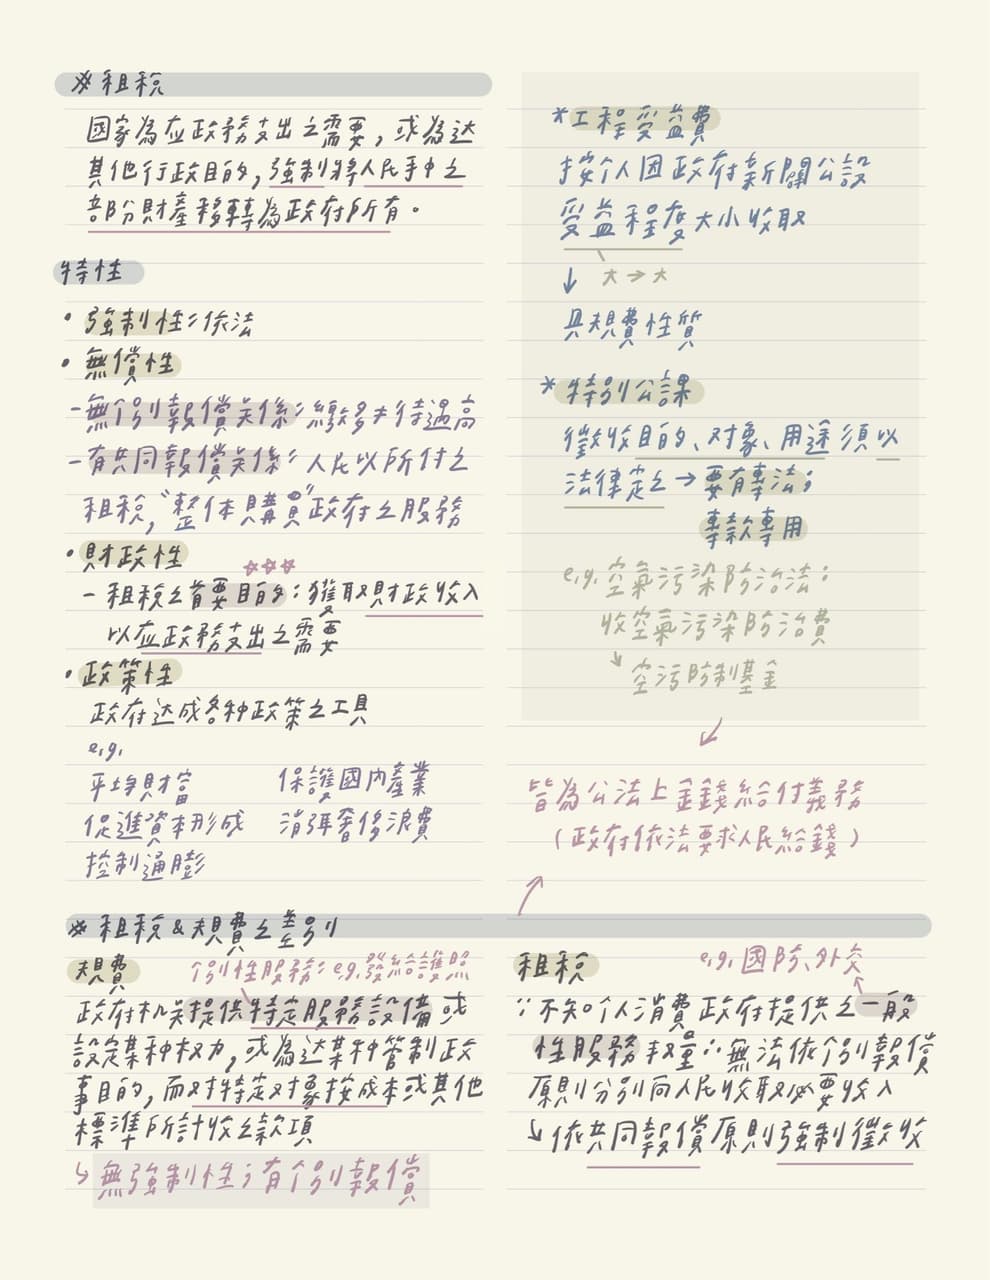 ※租稅
國家為应政務支出之需要，或為达
其他行政目的，強制將人民手中之
部份財產移轉為政府所有。
特性
• 強制性：依法
• 無償性
-無个別報償关係：繳多≠待遇高
-有共同報償关係：人民以所付之
租稅，"整体購買"政府之服務
• 財政性
- 租稅之首要目的：獲取財政收入
以应政務支出之需要
• 政策性
政府达成各种政策之工具
e.g.
平均財富 保護國內產業
促進資本形成 消弭奢侈浪費
控制通膨
*工程受益費
按个人因政府新闢公設
受益程度大小收取
大→大
↓
具規費性質
*特別公課
徵收目的、对象、用途須以
法律定之→要有專法；
專款專用
e.g.空氣污染防治法：
收空氣污染防治費
↘空污防制基金
皆為公法上金錢給付義務
（政府依法要求人民給錢）
※租稅&規費之差別
規費 个別性服務：e.g.發給護照
政府机关提供特定服務設備或
設定某种权力，或為达某种管制政
事目的，而对特定对象按成本或其他
標準所計收之款項
↳無強制性；有个別報償
租稅 e.g.國防、外交
∵不知个人消費政府提供之一般
性服務数量∴無法依个別報償
原則分別向人民收取必要收入
↳依共同報償原則強制徵收